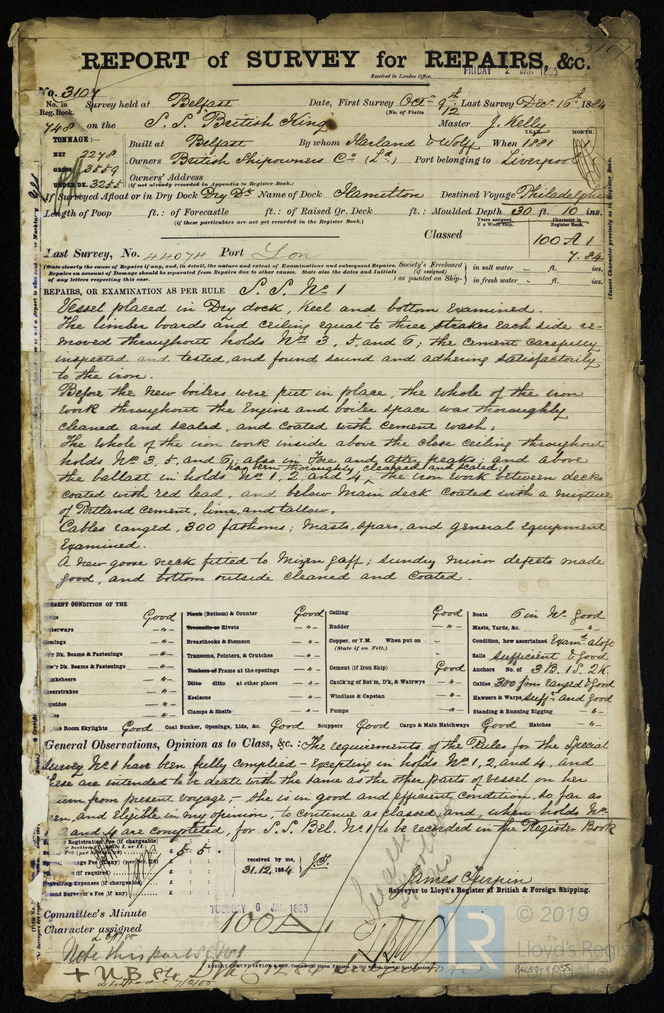 REPORT of SURVEY for REPAIRS, &c.
Received in London Office, FRIDAY 2 JAN 1885
3107
No. 3107
No. in Reg. Book. Survey held at Belfast Date, First Survey Oct 9th Last Survey Dec 16th 1884
(No. of Visits 12
748 on the S.S. British King Master J. Kelly
TONNAGE:— Built at Belfast By whom Harland & Wolff When 1881
YEAR. MONTH.
NET 2278 Owners British Shipowners Co (Ld) Port belonging to Liverpool
GROSS 3559 Owners' Address
UNDER DK. 3255 (if not already recorded in Appendix to Register Book.)
Surveyed Afloat or in Dry Dock Dry Dk Name of Dock Hamilton Destined Voyage Philadelphia
Length of Poop ft.: of Forecastle ft.: of Raised Qr. Deck ft.: Moulded Depth 30 ft. 10 ins.
(if these particulars are not yet recorded in the Register Book.)
Classed 100 A 1
7.84
Last Survey, No. 44074 Port Lon
(State clearly the cause of Repairs if any, and, in detail, the nature and extent of Examinations and subsequent Repairs.
Repairs on account of Damage should be separated from Repairs due to other causes. State also the dates and Initials
of any letters respecting this case.
Society's Freeboard (if assigned) as painted on Ship.- in salt water - ft. ins.
in fresh water - ft. ins.
REPAIRS, OR EXAMINATION AS PER RULE S.S. No 1
Vessel placed in Dry dock, Keel and bottom Examined.
The limber boards and ceiling equal to three strakes each side re-
moved throughout holds Nos 3, 5, and 6; the cement carefully
inspected and tested, and found sound and adhering satisfactorily
to the iron.
Before the new boilers were put in place, the whole of the iron
work throughout the Engine and boiler space was thoroughly
cleaned and scaled, and coated with cement wash.
The whole of the iron work inside above the close ceiling throughout
holds No 3, 5, and 6; also in Fore and after peaks; and above
the ballast in holds No 1, 2 and 4 has been thoroughly cleansed and scaled; the iron work between decks
coated with red lead, and below Main deck coated with a mixture
of Portland cement, lime and tallow.
Cables ranged, 300 fathoms; masts, spars, and general equipment
Examined.
A new goose neck fitted to Mizen gaff; sundry minor defects made
good, and bottom outside cleaned and coated.
PRESENT CONDITION OF THE
Good Planks (Bottom) & Counter Good Ceiling Good Boats 6 in No Good
Waterways -"- Treenails or Rivets -"- Rudder -"- Masts, Yards, &c. -"-
Comings -"- Breasthooks & Stemson -"- Copper, or Y.M. When put on - Condition, how ascertained Exam. aloft
(State if on Felt.)
Dk. Beams & Fastenings -"- Transoms, Pointers, & Crutches -"- Sails Sufficient & Good
Dk. Beams & Fastenings -"- Timbers or Frame at the openings -"- Cement (if Iron Ship) Good Anchors No. of 3B. 1S. 2K.
-"- Ditto ditto at other places -"- Caulk'ng of Bot'm, D'ks, & Watrwys -"- Cables 300 fms ranged & Good
-"- Keelsons -"- Windlass & Capstan -"- Hawsers & Warps suff. and Good
-"- Clamps & Shelfs -"- Pumps -"- Standing & Running Rigging -"-
Room Skylights Good Coal Bunker, Openings, Lids, &c. Good Scuppers Good Cargo & Main Hatchways Good Hatches -"-
General Observations, Opinion as to Class, &c. :- The requirements of the Rules for the Special
Survey No 1 have been fully complied - Excepting in holds No 1, 2 and 4, and
these are intended to be dealt with the same as the other parts of vessel on her
from present voyage, - She is in good and efficient condition, so far as
seen, and Eligible in my opinion, to continue as classed, and, when holds No
2 and 4 are completed, for S.S. Bel. No 1 to be recorded in the Register Book
Registration Fee (if chargeable)
5 5 .
Damage Fee (if any)
(if required)
Travelling Expenses (if chargeable)
Surveyor's Fee (if any)
received by me,
31.12.1884
James Turpin
Surveyor to Lloyd's Register of British & Foreign Shipping.
Committee's Minute TUESDAY 6 JAN 1885
Character assigned 100 A 1
Note this part
+ N.B 84
LR
© 2019
Lloyd's Register
Foundation